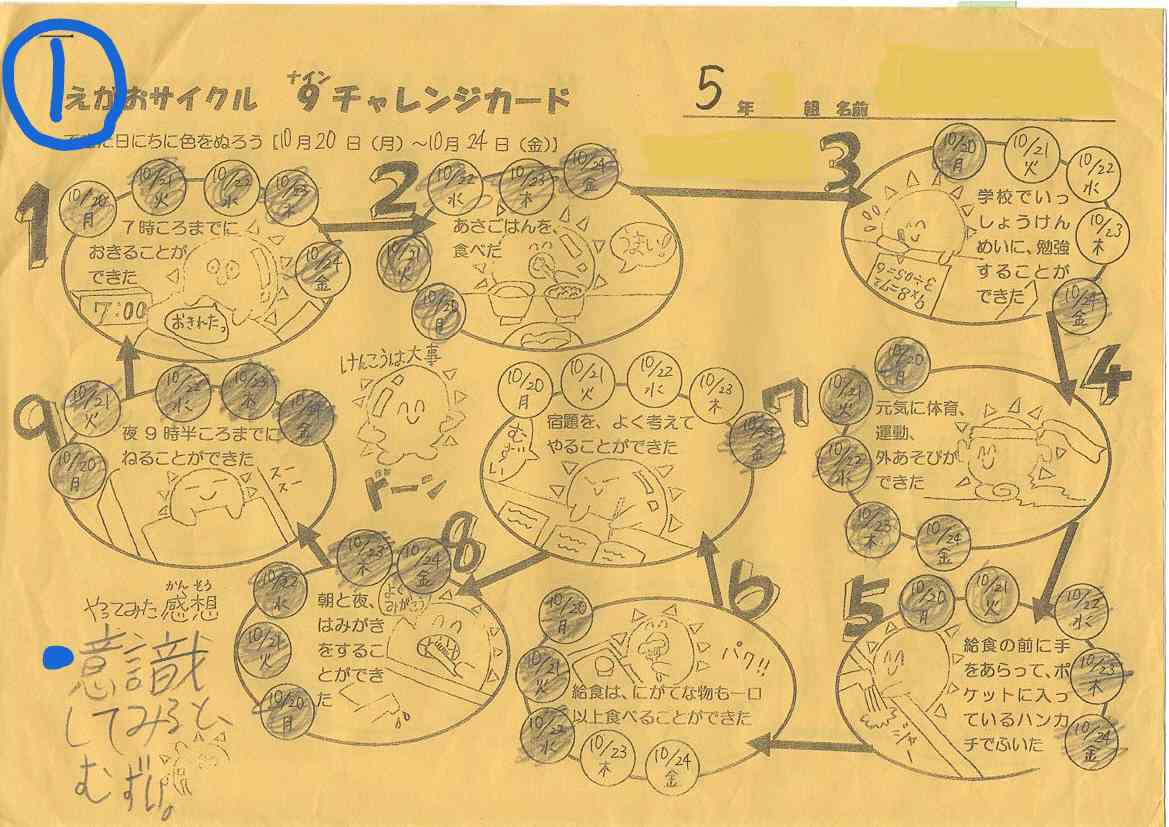 1
えがおサイクル 9チャレンジカード
ナイン
5年 組 名前
日にちに色をぬろう [10月20日(月)~10月24日(金)]
1
10/20 月
10/21 火
10/22 水
10/23 木
10/24 金
7時ころまでに
おきることが
できた
7:00
おきれたっ
2
10/20 月
10/21 火
10/22 水
10/23 木
10/24 金
あさごはんを、
食べだ
うまい!!
3
10/20 月
10/21 火
10/22 水
10/23 木
10/24 金
学校でいっ
しょうけん
めいに、勉強
することが
できた
9×8=72
4
10/20 月
10/21 火
10/22 水
10/23 木
10/24 金
元気に体育、
運動、
外あそびが
できた
5
10/20 月
10/21 火
10/22 水
10/23 木
10/24 金
給食の前に手
をあらって、ポ
ケットに入っ
ているハンカ
チでふいた
6
10/20 月
10/21 火
10/22 水
10/23 木
10/24 金
パク!!
給食は、にがてな物も一口
以上食べることができた
7
10/20 月
10/21 火
10/22 水
10/23 木
10/24 金
宿題を、よく考えて
やることができた
むずい
8
10/20 月
10/21 火
10/22 水
10/23 木
10/24 金
朝と夜、
はみがき
をするこ
とができ
た
9
10/20 月
10/21 火
10/22 水
10/23 木
10/24 金
夜9時半ころまでに
ねることができた
スー
スー
けんこうは大事
ドーン
かんそう
やってみた感想
意識
してみると、
むずい。